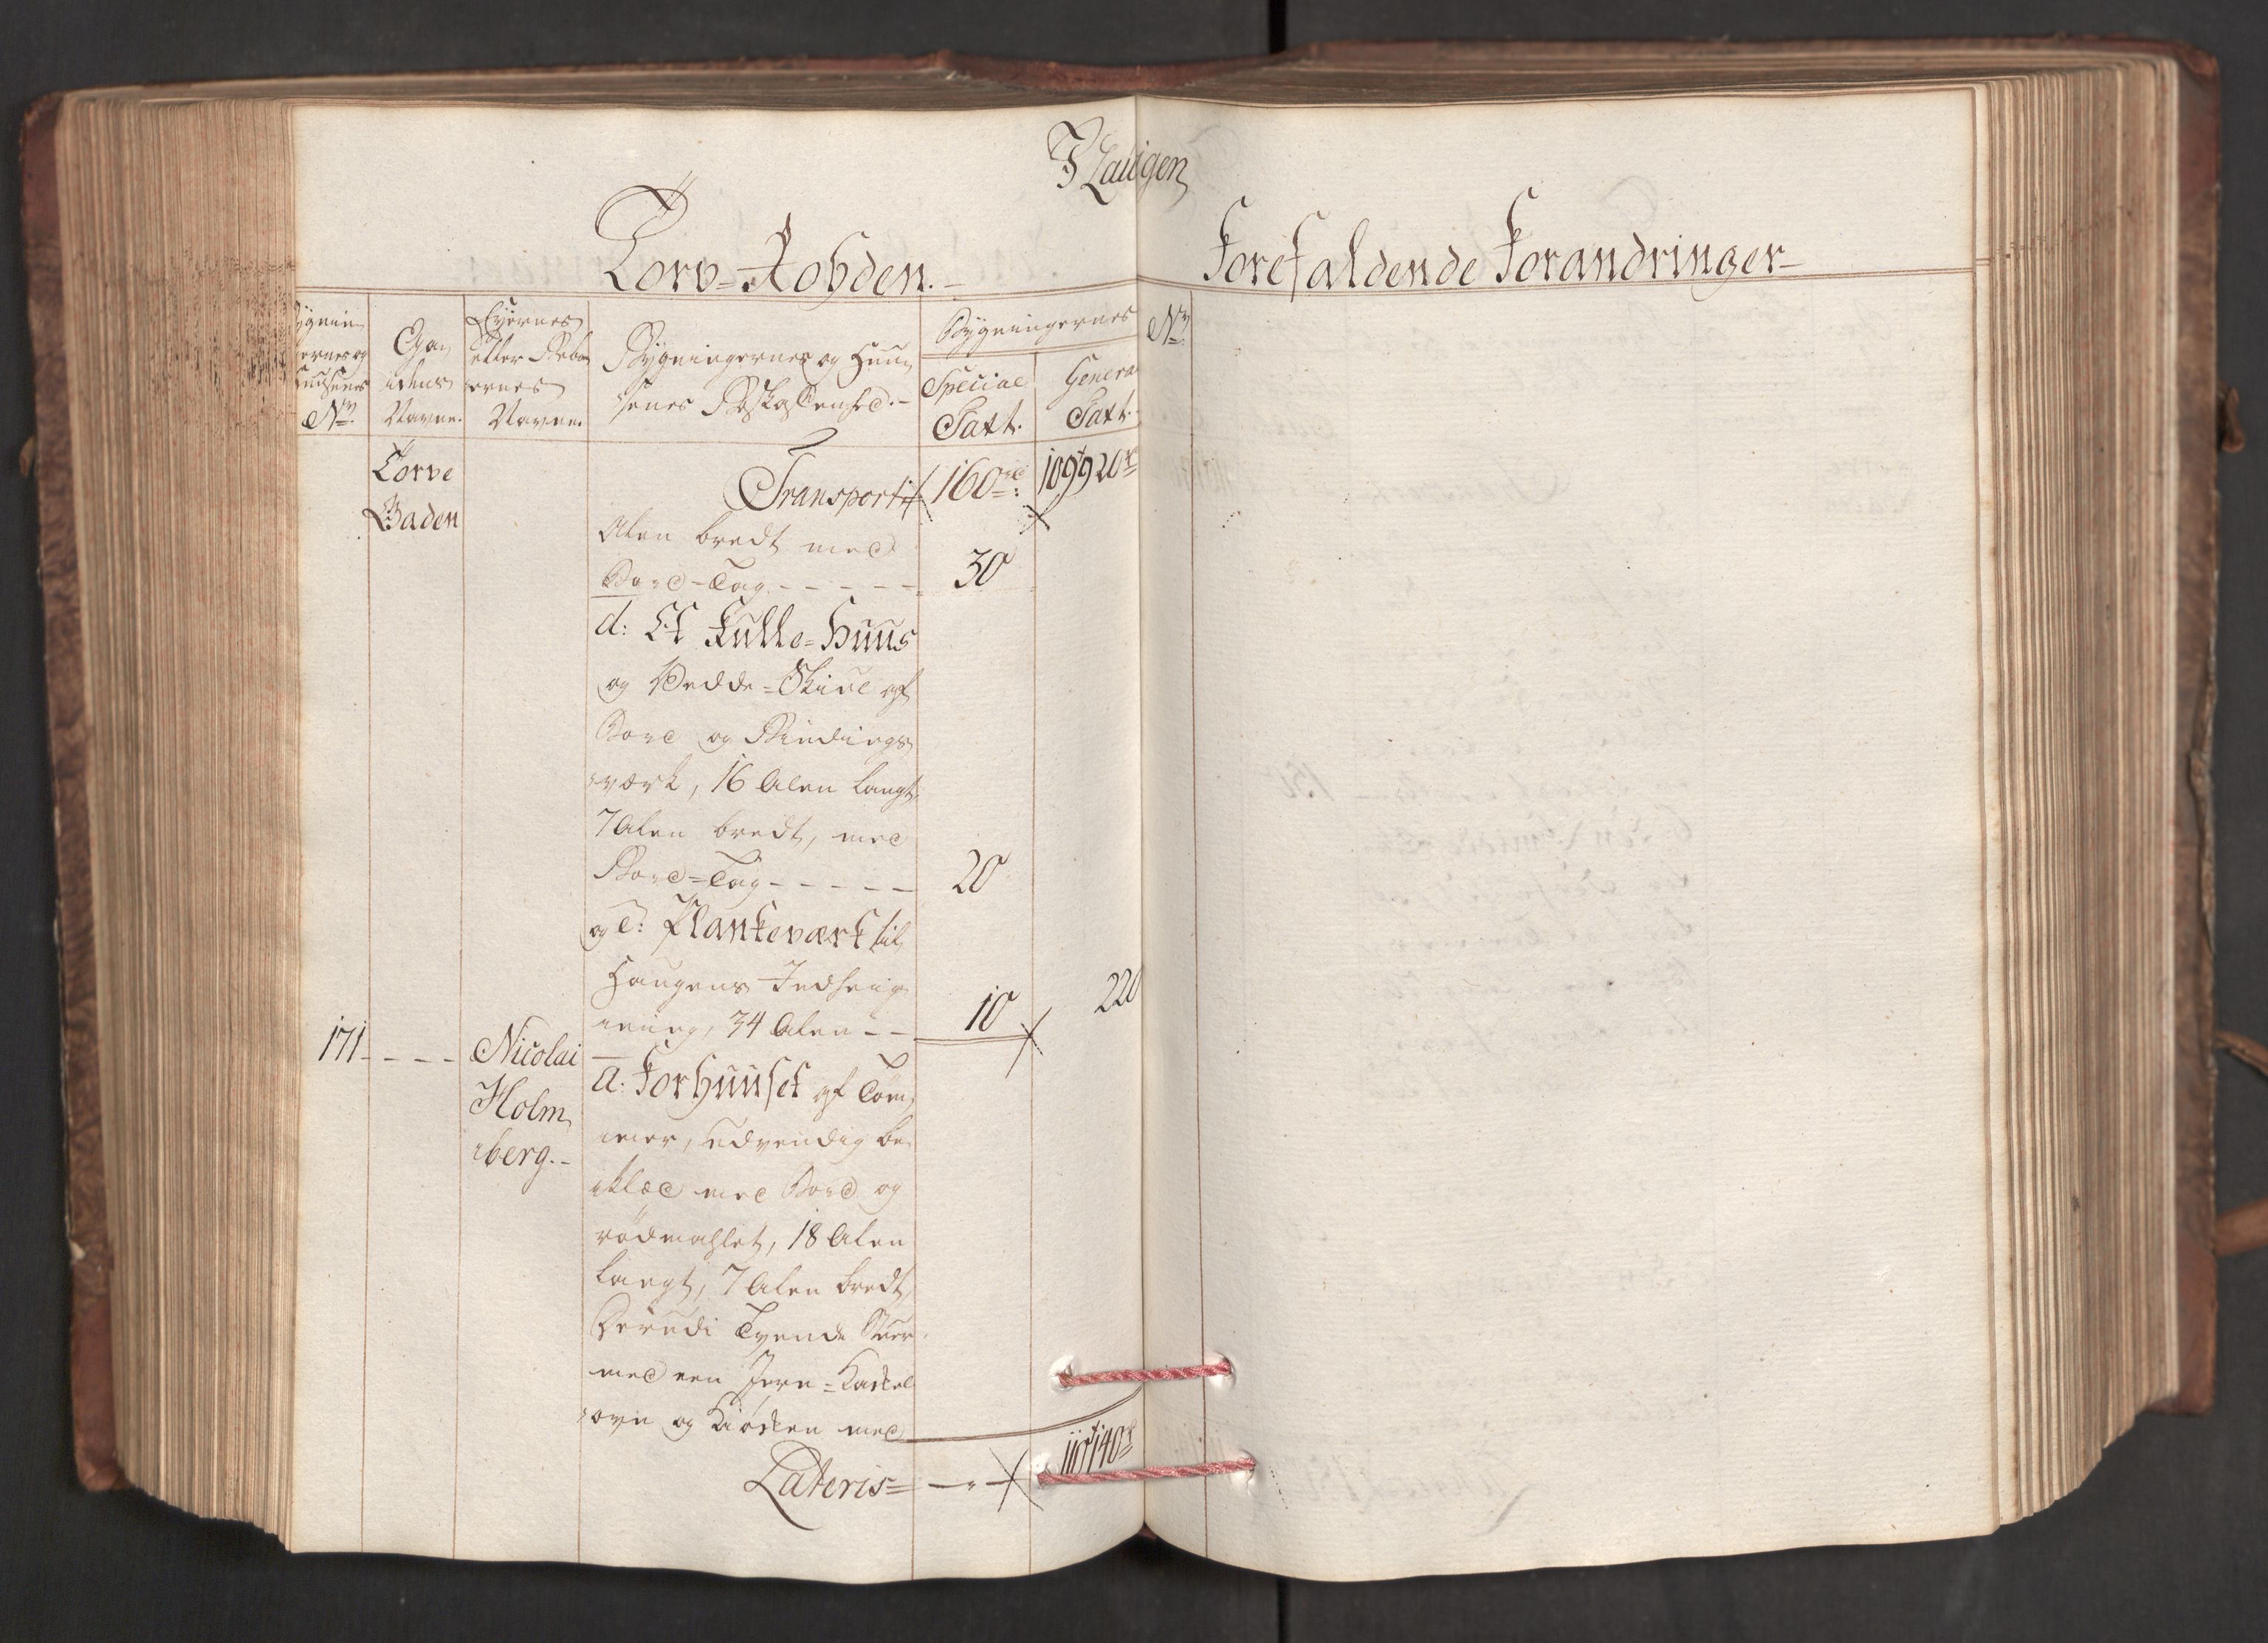 I Laugen
Torv-Røÿden.-
Forefaldende Forandringer-
Bygnin
ernes og
Huusenes
No.
Ga
dens
Navne.
Eyernes
eller Bebo
ernes
Navne.
Bygningernes og Huu
senes Beskaffenhed.-
Bygningernes
Special
Taxt.
General
Taxt.
No.
Torve
Gaden
Transport 160 rd: 109920 rd
Alen bredt med
Bord-Tag - - - - - 30
d: Et Fulle-Huus
og Vedde-Skiul af
Bord og Bindings
værk, 16 Alen langt,
7 Alen bredt, med
Bord-Tag - - - - - 20
og e: Plankeværk til
Haugens Indheig
ning, 34 Alen - - 10 220
171 - - - - Nicolai
Holm
berg.-
a: Forhuuset af Tøm
mer, udvendig be
klæd med Bord og
rødmahlet, 18 Alen
langt, 7 Alen bredt,
Derudi Tvende Stuer
med een Jern-Kakkel
ovn og Kiøkken med
Lateris 110140 rd